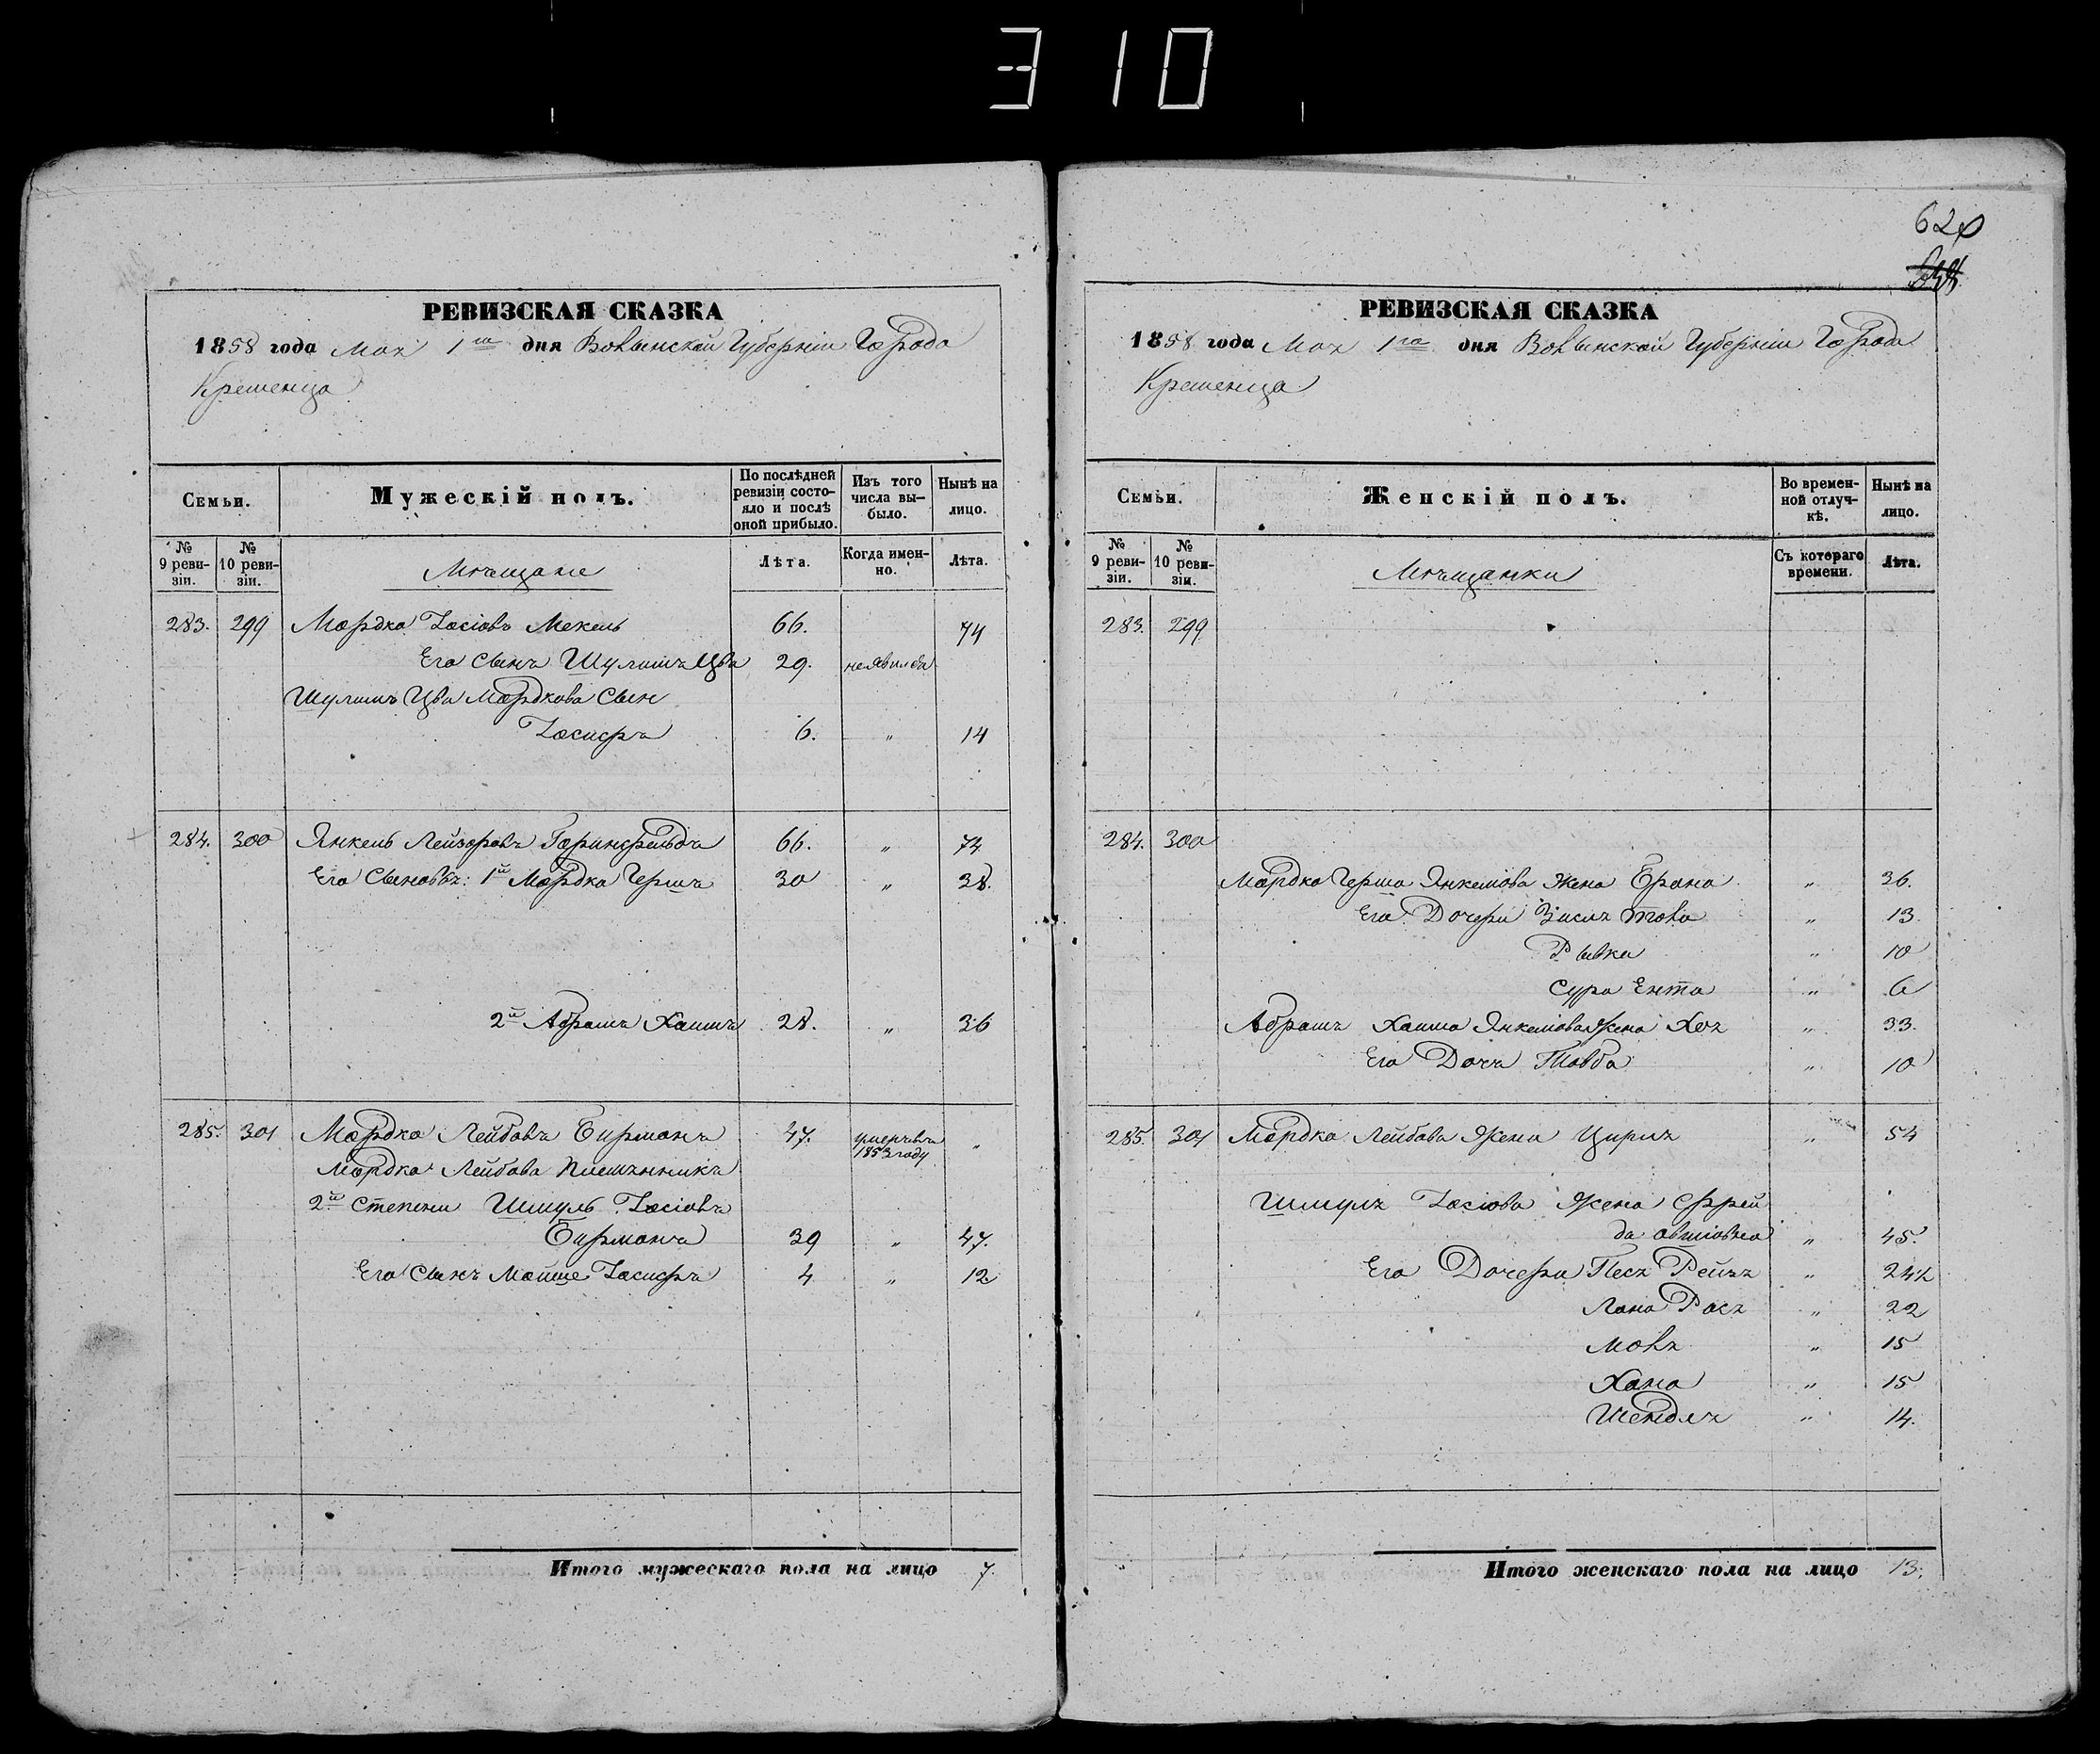 310
620
РЕВИЗСКАЯ СКАЗКА
1858 года Мая 1го дня Волынской Губерніи Города
Кременца
Семьи.
Мужескій полъ.
По послѣдней ревизіи состояло и послѣ оной прибыло.
Изъ того числа выбыло.
Нынѣ на лицо.
№ 9 ревизіи.
№ 10 ревизіи.
Мѣщане
Лѣта.
Когда именно.
Лѣта.
283. 299 Мордко Іосіовъ Мекель 66. 74
Его Сынъ Шулимъ Цви 29. неявился
Шулимъ Цви Мордкова Сын
Іосифъ 6. " 14
284. 300 Янкель Лейзоровъ Горинфельдъ 66. " 74
Его Сыновья: 1й Мордко Гершъ 30 " 38.
2й Абрамъ Хаимъ 28. " 36
285. 301 Мордко Лейбовъ Бирманъ 47. умеръ въ 1853 году "
Мордка Лейбова Племянникъ
2й Степени Шмуль Іосіовъ
Бирманъ 39 " 47.
Его Сынъ Мойше Іосифъ 4 " 12
Итого мужескаго пола на лицо 7.
РЕВИЗСКАЯ СКАЗКА
1858 года Мая 1го дня Волынской Губерніи Города
Кременца
Семьи.
Женскій полъ.
Во временной отлучкѣ.
Нынѣ на лицо.
№ 9 ревизіи.
№ 10 ревизіи.
Мѣщанки
Съ котораго времени.
Лѣта.
283. 299
284. 300
Мордко Герша Янкеліова Жена Брана " 36.
Его Дочери Зисля Товба " 13
Рывка " 10
Сура Ента " 6
Абрамъ Хаима Янкеліова Жена Хая " 33.
Его Дочь Товба " 10
285. 301 Мордка Лейбова Жена Цирля " 54
Шмуля Іосіова Жена Фрей
да Овшіовна " 45.
Его Дочери Песя Рейзя " 24½
Лана Рося " 22
Моля " 15
Хана " 15
Шендля " 14.
Итого женскаго пола на лицо 13.